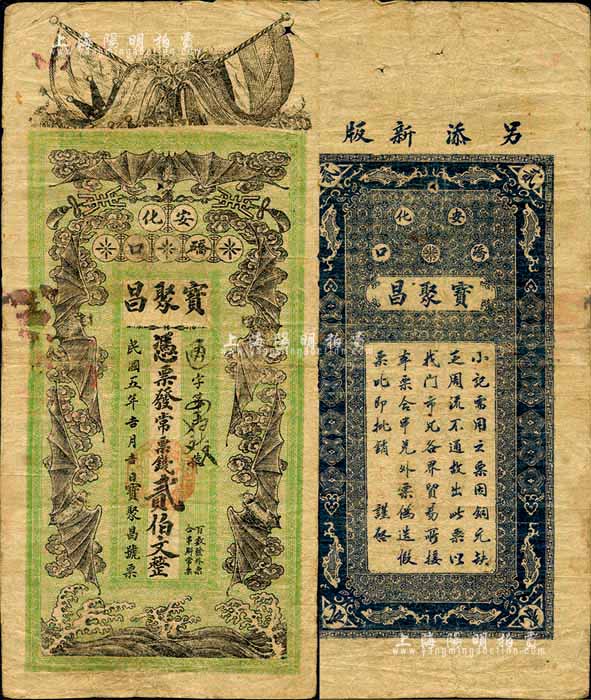 上海陽明拍賣
安化
橋口
寶聚昌
憑票發常票錢貳伯文整
百數餘外票
合串斢常票
民國五年吉月吉日寶聚昌號票
另添新版
安化
橋口
寶聚昌
小記需用之票因銅元缺
乏周流不通故出此票以
找門市凡各界貿易所接
本票合串兌外票偽造假
票此即批銷 謹啓
上海陽明拍賣
上海陽明拍賣
www.yangmingauction.com